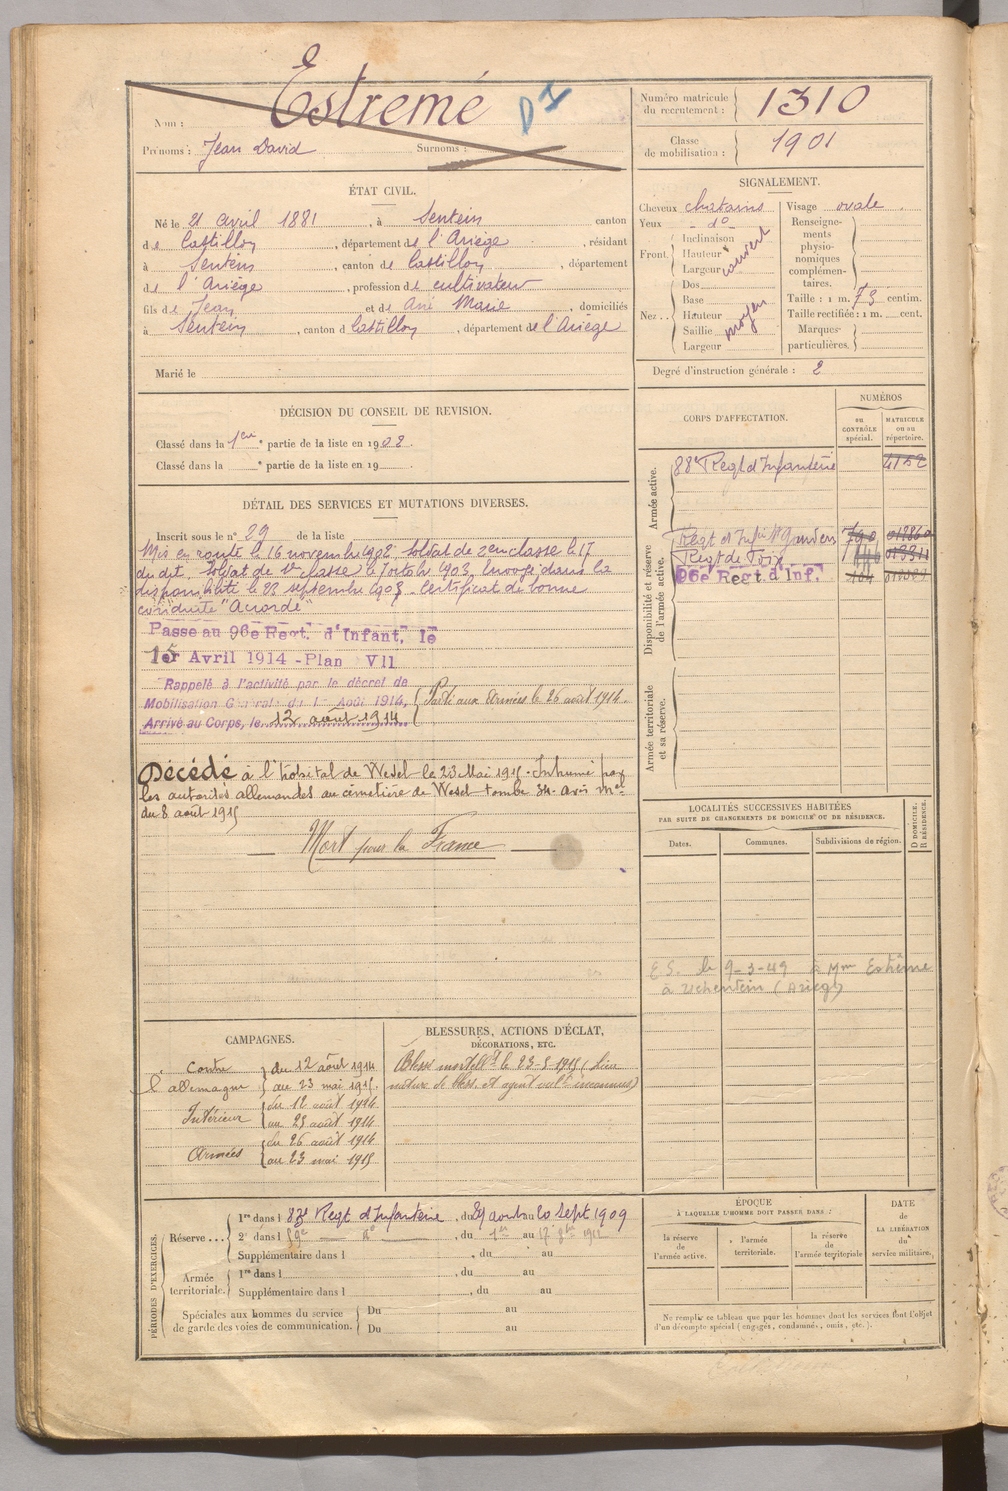 Nom : Estremé D I
Prénoms : Jean David Surnoms :
Numéro matricule du recrutement : 1310
Classe de mobilisation : 1901
ÉTAT CIVIL.
Né le 21 avril 1881, à Sentein canton
de Castillon, département de l'Ariège, résidant
à Sentein, canton de Castillon, département
de l'Ariège, profession de cultivateur
fils de Jean et de Ané Marie, domiciliés
à Sentein, canton d Castillon, département de l'Ariège
Marié le
SIGNALEMENT.
Cheveux chatains Visage ovale
Yeux d°
Front. Inclinaison
Hauteur
Largeur
couvert
Nez.. Dos
Base
Hauteur
Saillie
Largeur
moyen
Renseignements physionomiques complémentaires.
Taille : 1 m. 73 centim.
Taille rectifiée : 1 m. cent.
Marques particulières.
Degré d'instruction générale : 2
DÉCISION DU CONSEIL DE REVISION.
Classé dans la 1ere partie de la liste en 1902.
Classé dans la e partie de la liste en 19
DÉTAIL DES SERVICES ET MUTATIONS DIVERSES.
Inscrit sous le n° 29 de la liste
Mis en route le 16 novembre 1902. Soldat de 2eme classe le 17
du dit. Soldat de 1re classe le 7 octobre 1903. Envoyé dans la
disponibilité le 23 septembre 1905. Certificat de bonne
conduite "Accordé"
Passe au 96e Regt. d'Infant. le
1er Avril 1914 - Plan VII
Rappelé à l'activité par le décret de
Mobilisation Générale du 1er Août 1914,
Arrivé au Corps, le 12 août 1914.
Parti aux armées le 26 août 1914.
Décédé à l'hôpital de Wesel le 23 Mai 1915. Inhumé par
les autorités allemandes au cimetière de Wesel tombe 34. avis mel
du 8 août 1915
Mort pour la France
CORPS D'AFFECTATION.
NUMÉROS
au CONTRÔLE spécial.
MATRICULE ou au répertoire.
Armée active.
88e Regt d'Infanterie 4152
Disponibilité et réserve de l'armée active.
Regt d'Infie St Gaudens 790
Regt de Foix
96e Regt. d'Inf.
Armée territoriale et sa réserve.
LOCALITÉS SUCCESSIVES HABITÉES
PAR SUITE DE CHANGEMENTS DE DOMICILE OU DE RÉSIDENCE.
Dates. Communes. Subdivisions de région. D DOMICILE, R RÉSIDENCE.
E.S. le 9-3-49 à Mm Estrême
à Uchentein (Ariège)
CAMPAGNES.
Contre l'allemagne du 12 août 1914
au 23 mai 1915.
Intérieur du 12 août 1914
au 25 août 1914
Armées du 26 août 1914
au 23 mai 1915
BLESSURES, ACTIONS D'ÉCLAT,
DÉCORATIONS, ETC.
Blessé mortellt le 23-5-1915 (lieu
nature de bless. et agent vulnt inconnus)
PÉRIODES D'EXERCICES.
Réserve ... 1re dans l 83e Regt d'Infanterie, du 29 aout au 20 Sept 1909
2e dans l , du 1er au 17 1912
Supplémentaire dans l , du au
Armée territoriale. 1re dans l , du au
Supplémentaire dans l , du au
Spéciales aux hommes du service de garde des voies de communication. Du au
Du au
ÉPOQUE
À LAQUELLE L'HOMME DOIT PASSER DANS :
la réserve de l'armée active.
l'armée territoriale.
la réserve de l'armée territoriale
DATE de LA LIBÉRATION du service militaire.
Ne remplir ce tableau que pour les hommes dont les services font l'objet
d'un décompte spécial (engagés, condamnés, omis, etc.).